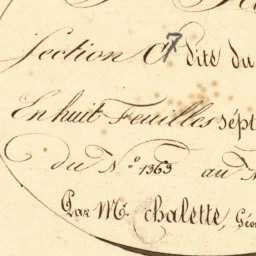 Section C7 dite du
En huit Feuilles sépt
du N.º 1363 au N
Par Mr. Chalette, Géo